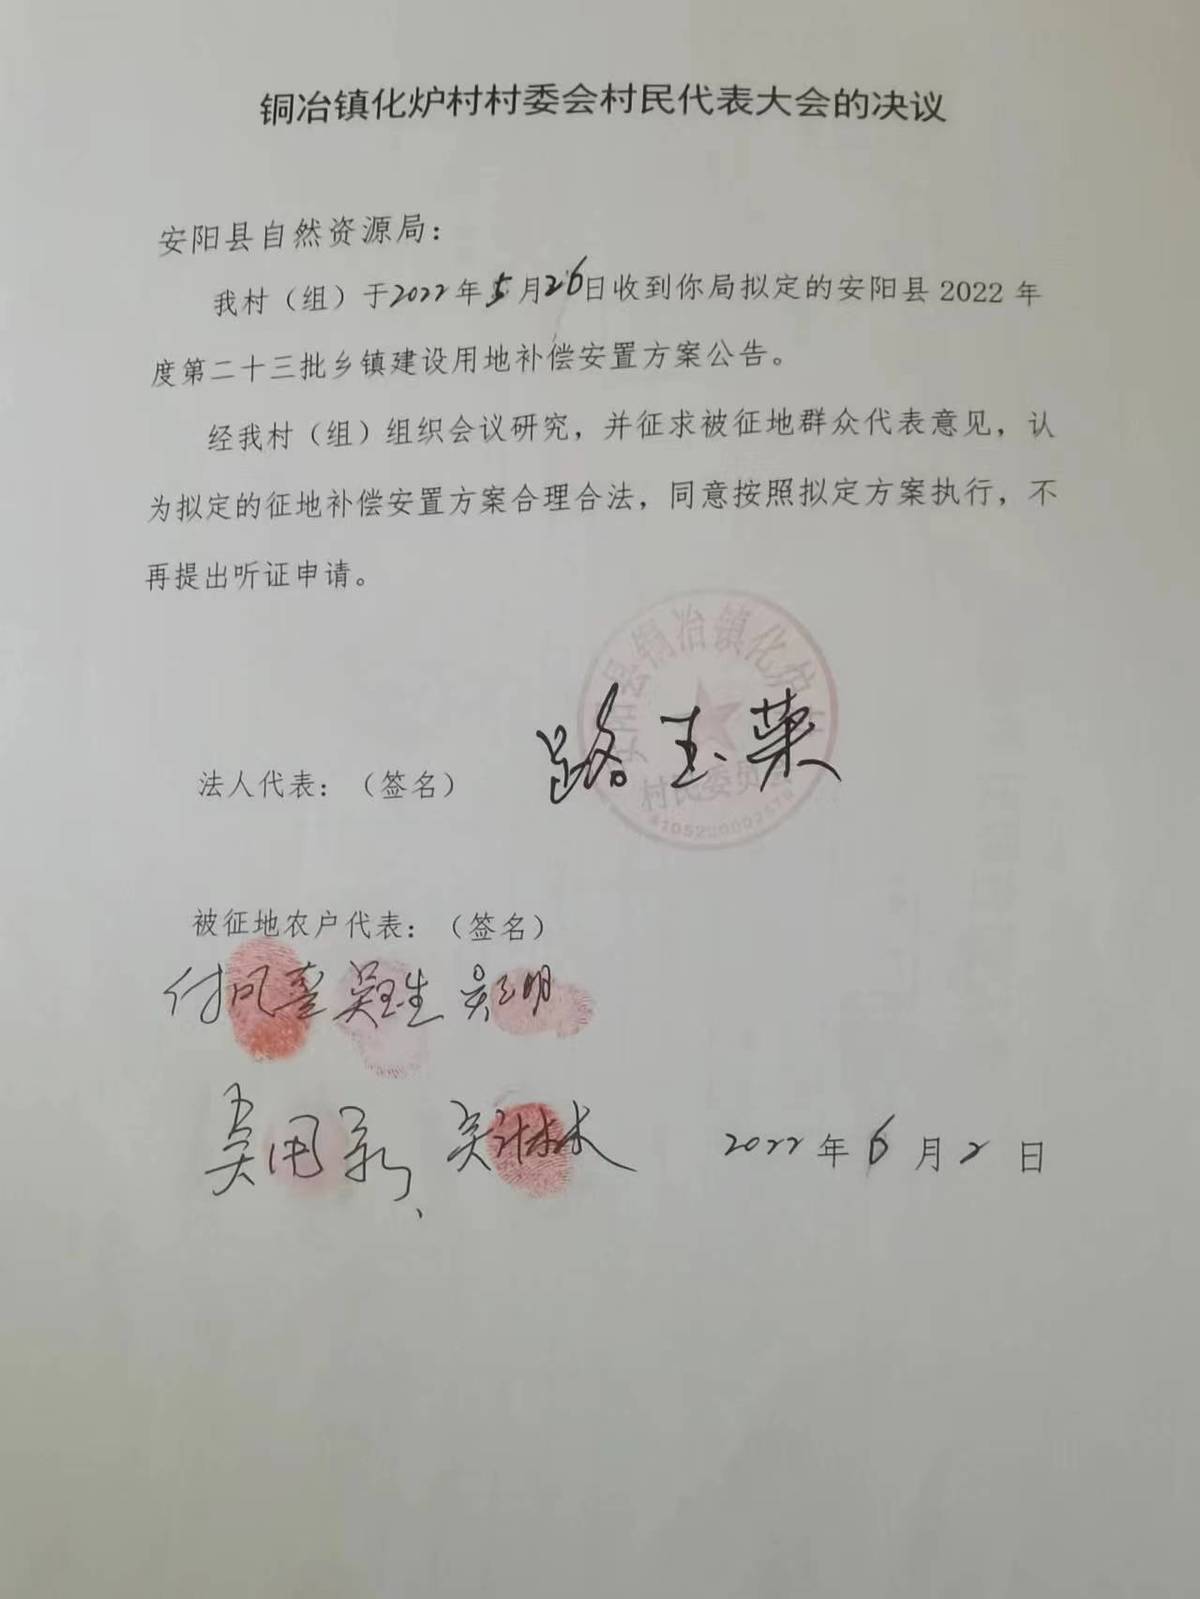 铜冶镇化炉村村委会村民代表大会的决议
安阳县自然资源局：
我村（组）于2022年5月26日收到你局拟定的安阳县2022年
度第二十三批乡镇建设用地补偿安置方案公告。
经我村（组）组织会议研究，并征求被征地群众代表意见，认
为拟定的征地补偿安置方案合理合法，同意按照拟定方案执行，不
再提出听证申请。
安阳县铜冶镇化炉村
村民委员会
法人代表：（签名） 路玉荣
被征地农户代表：（签名）
付凤喜 吴玉生 吴明
吴用 吴林
2022年6月2日